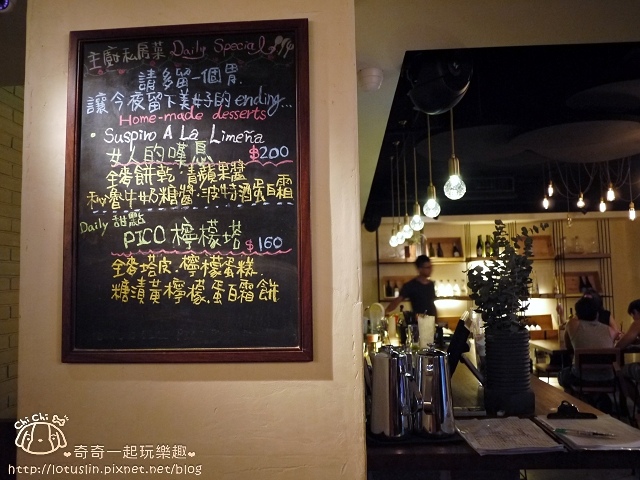 主廚私房菜 Daily Special
請多留一個胃.
讓今夜留下美好的ending...
Home-made desserts
• Suspiro A La Limeña
女人的嘆息 $200
全麥餅乾.青蘋果醬
秘魯牛奶糖醬.波特酒蛋白霜
Daily 甜點
PICO 檸檬塔 $160
全麥塔皮.檸檬蛋糕.
糖漬黃檸檬.蛋白霜餅
Chi Chi
奇奇一起玩樂趣
http://lotuslin.pixnet.net/blog